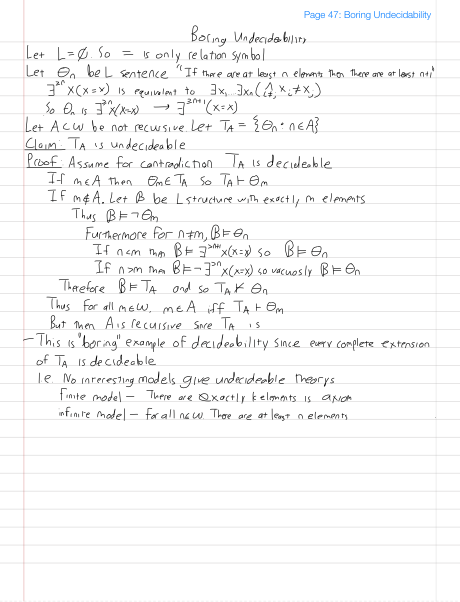 Page 47: Boring Undecidability
Boring Undecidability
Let L=∅. So = is only relation symbol
Let Θₙ be L sentence "If there are at least n elements then there are at least n+1"
∃^≥n x(x=x) is equivalent to ∃x₁ ∃xₙ(⋀_{i≠j} xᵢ≠xⱼ)
So Θₙ is ∃^≥n x(x=x) → ∃^≥n+1 (x=x)
Let A⊂ω be not recursive Let T_A = {Θₙ : n∈A}
Claim: T_A is undecideable
Proof: Assume for contradiction T_A is decideable
If m∈A then Θm∈T_A so T_A ⊢ Θm
If m∉A. Let B be L structure with exactly m elements
Thus B⊨¬Θm
Furthermore for n≠m, B⊨Θₙ
If n<m then B⊨ ∃^≥n+1 x(x=x) so B⊨Θₙ
If n>m then B⊨¬∃^≥n x(x=x) so vacuosly B⊨Θₙ
Therefore B⊨T_A and so T_A ⊬ Θₙ
Thus for all m∈ω, m∈A iff T_A ⊢ Θm
But then A is recursive since T_A is
- This is "boring" example of decideability since every complete extension
of T_A is decideable
I.e. No interesting models give undecideable theorys
Finite model - There are exactly k elements is axiom
infinite model - for all n∈ω. There are at least n elements